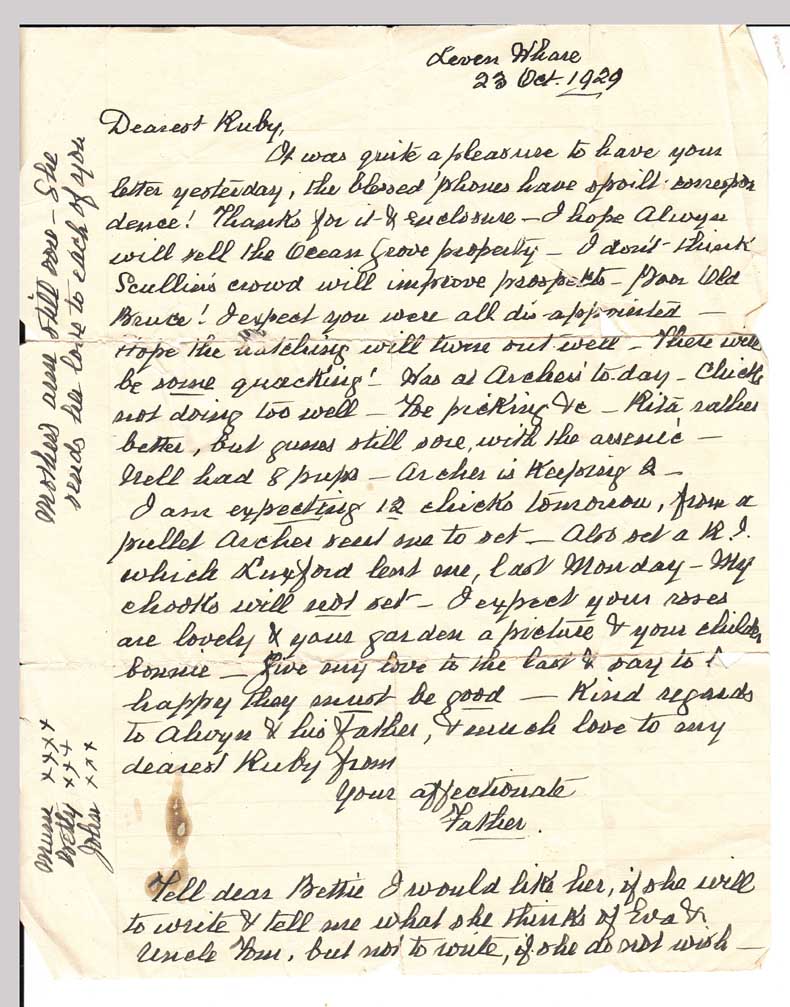 Leven Whare
23 Oct. 1929
Dearest Ruby,
It was quite a pleasure to have your
letter yesterday, the blessed 'phones have spoilt correspon
dence! Thanks for it & enclosure – I hope Alwyn
will sell the Ocean Grove property – I don't think
Scullin's crowd will improve prospects – Poor Old
Bruce! I expect you were all dis-appointed –
Hope the hatching will turn out well – There will
be some quacking! Was at Archers to-day – Chicks
not doing too well – Toe picking &c – Rita rather
better, but gums still sore, with the arsenic –
Nell had 8 pups – Archer is keeping 2 –
I am expecting 12 chicks tomorrow, from a
pullet Archer sent me to set – Also set a R.I.
which Luxford lent me, last Monday – My
chooks will not set – I expect your roses
are lovely & your garden a picture & your childn
bonnie – Give my love to the last & say to
happy they must be good – Kind regards
to Alwyn & his Father, & much love to my
dearest Ruby from
Your affectionate
Father.
Tell dear Bettie I would like her, if she will
to write & tell me what she thinks of Eva &
Uncle Tom, but not to write, if she do not wish –
Mother's arm still sore – She
sends her love to each of you
Mum xxxx
Betty xxx
John xxx